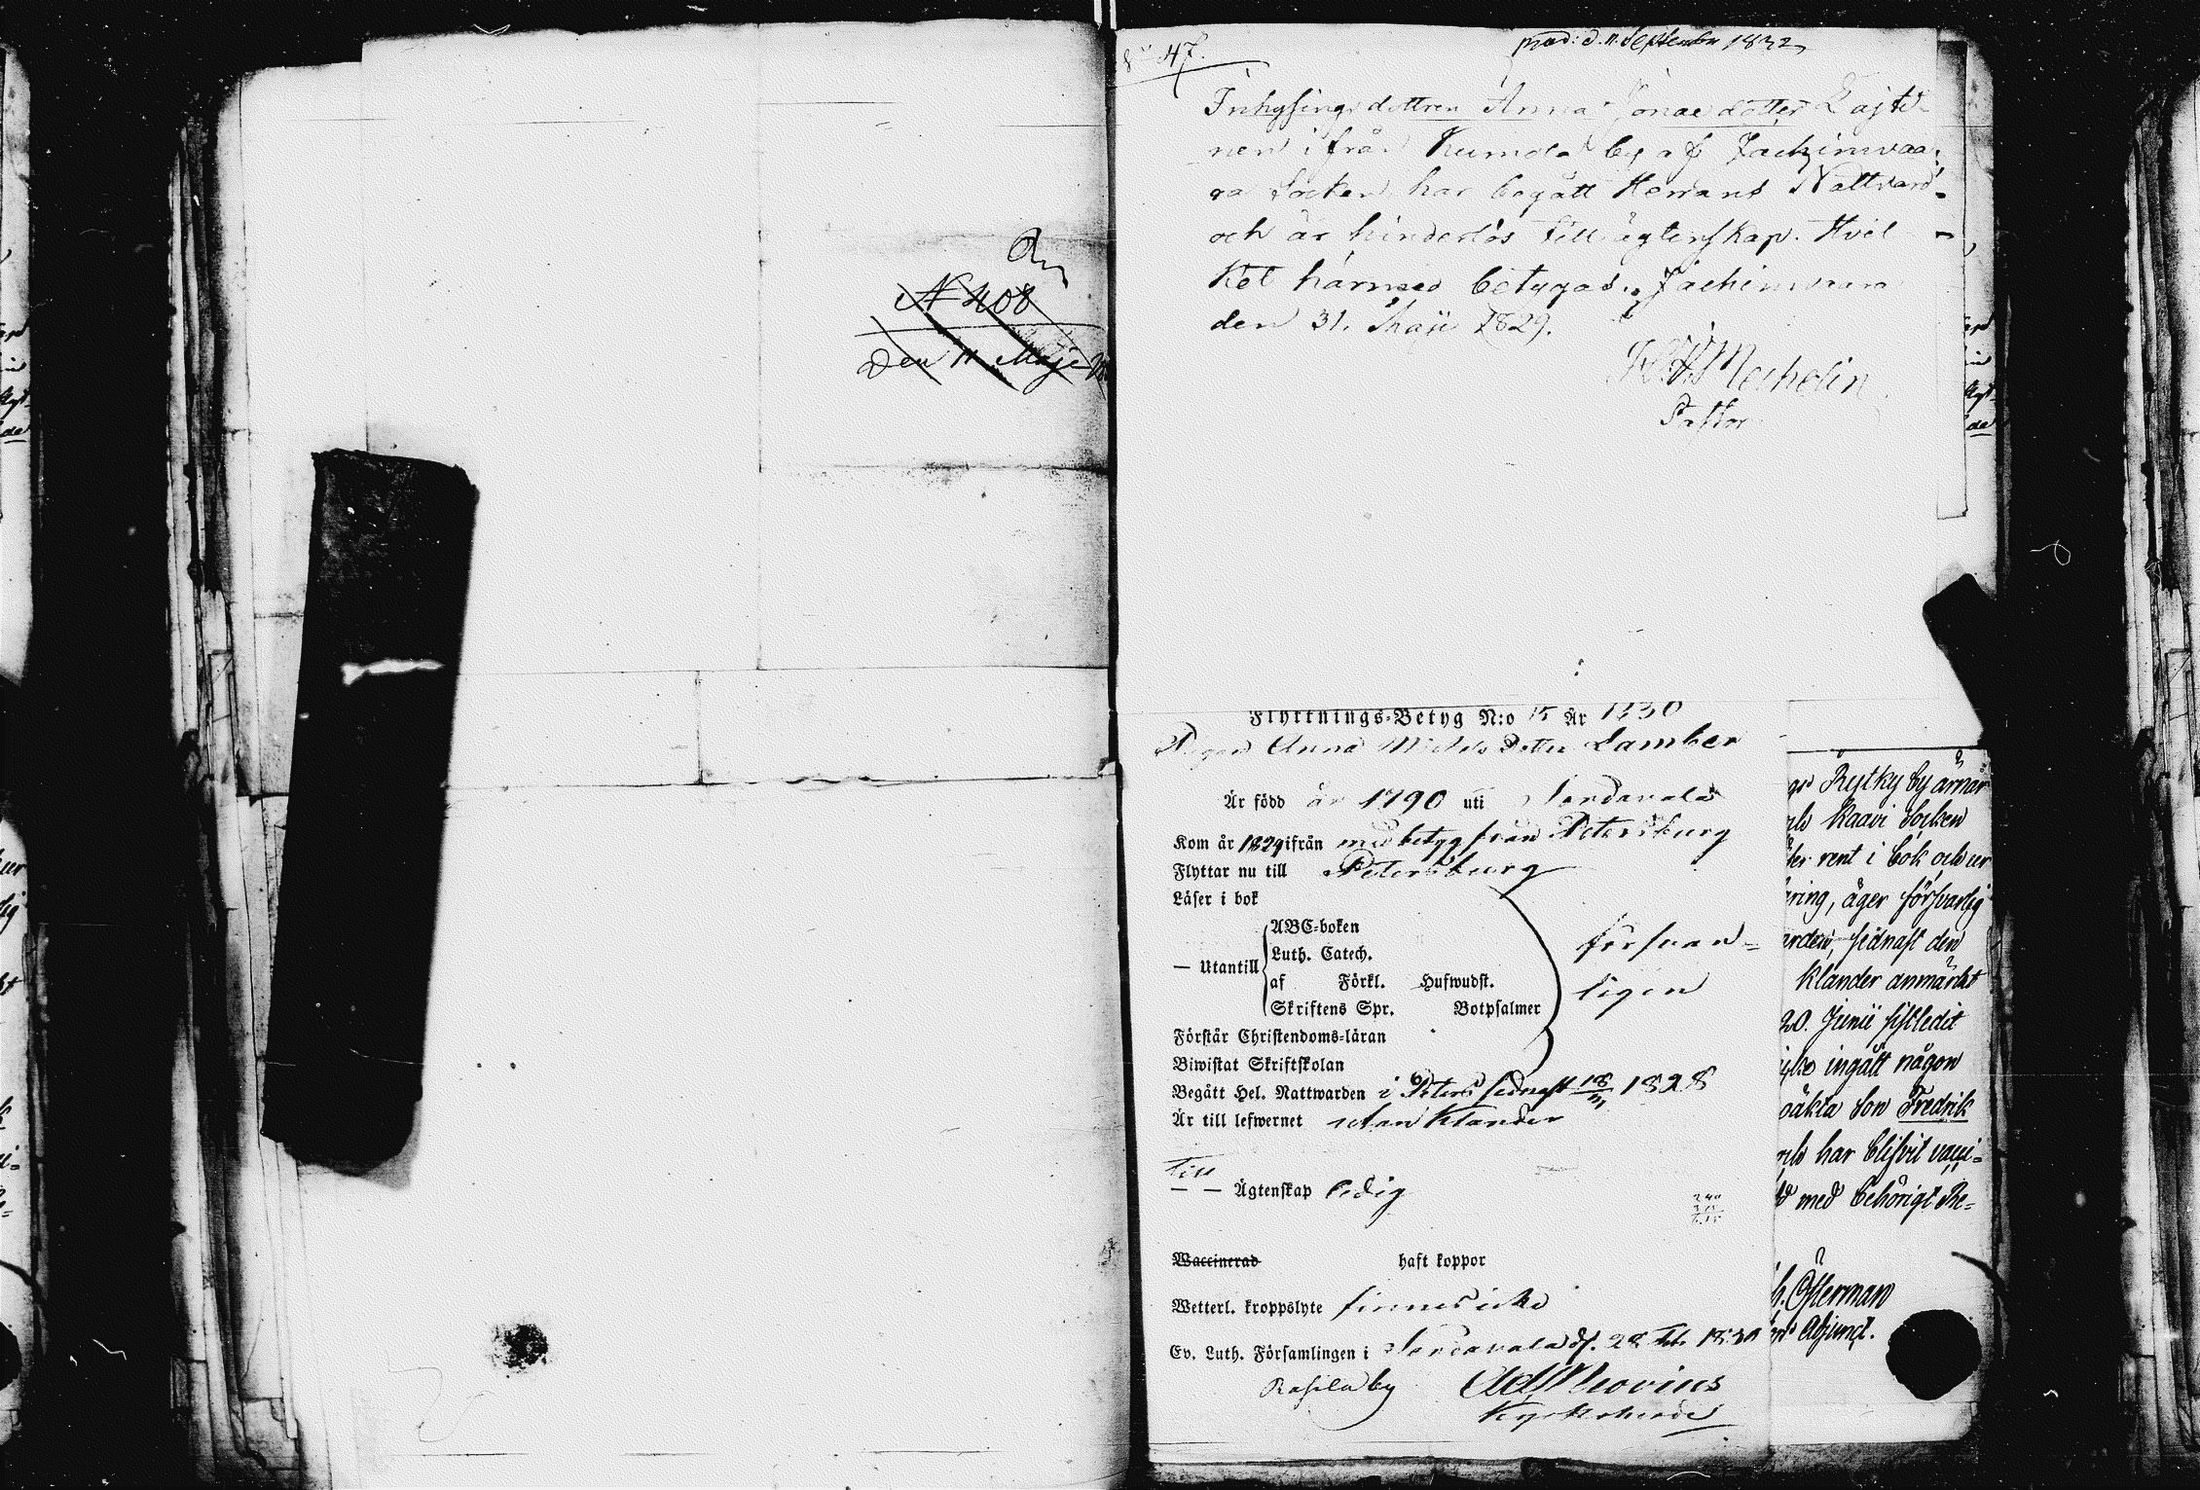 N 408
Den 11 Maji
47.
prod: d. 11 September 1832
Inhysings dottren Anna Jonae dotter Lajti-
nen ifrån Kumola by af Jachimvaa-
ra Socken har begått Herrans Nattvard
och är hinderlös till ägtenskap. Hvil-
ket härmed betygas. Jachimvara
den 31. Maji 1829.
Mechelin
Pastor
Flyttnings-Betyg N:o 15 År 1830
Pigan Anna Michels dotter Lamber
Är född år 1790 uti Sordavala
Kom år 1829 ifrån med betyg från Petersburg
Flyttar nu till Petersburg
Läser i bok
— Utantill
ABC-boken
Luth. Catech.
af Förkl. Hufwudst.
Skriftens Spr. Botpsalmer
försvar-
ligen
Förstår Christendoms-läran
Biwistat Skriftskolan
Begått Hel. Nattwarden i Petersb sednast 18 1828
Är till lefwernet utan klander
till
— — Ägtenskap ledig
Waccinerad haft koppor
Wetterl. kroppslyte finnes icke
Ev. Luth. Församlingen i Sordavala d. 28 Feb. 1830
by Neovius
Kyrkoherde
Rytky by ärnar
Kaavi Socken
rent i bok och ur
äger försvarlig
sednast den
klander anmärkt
20. Junii sistledit
ingått någon
oäkta Son Fredrik
har blifvit vacci-
med behörigt Be-
Österman
Adjunct.